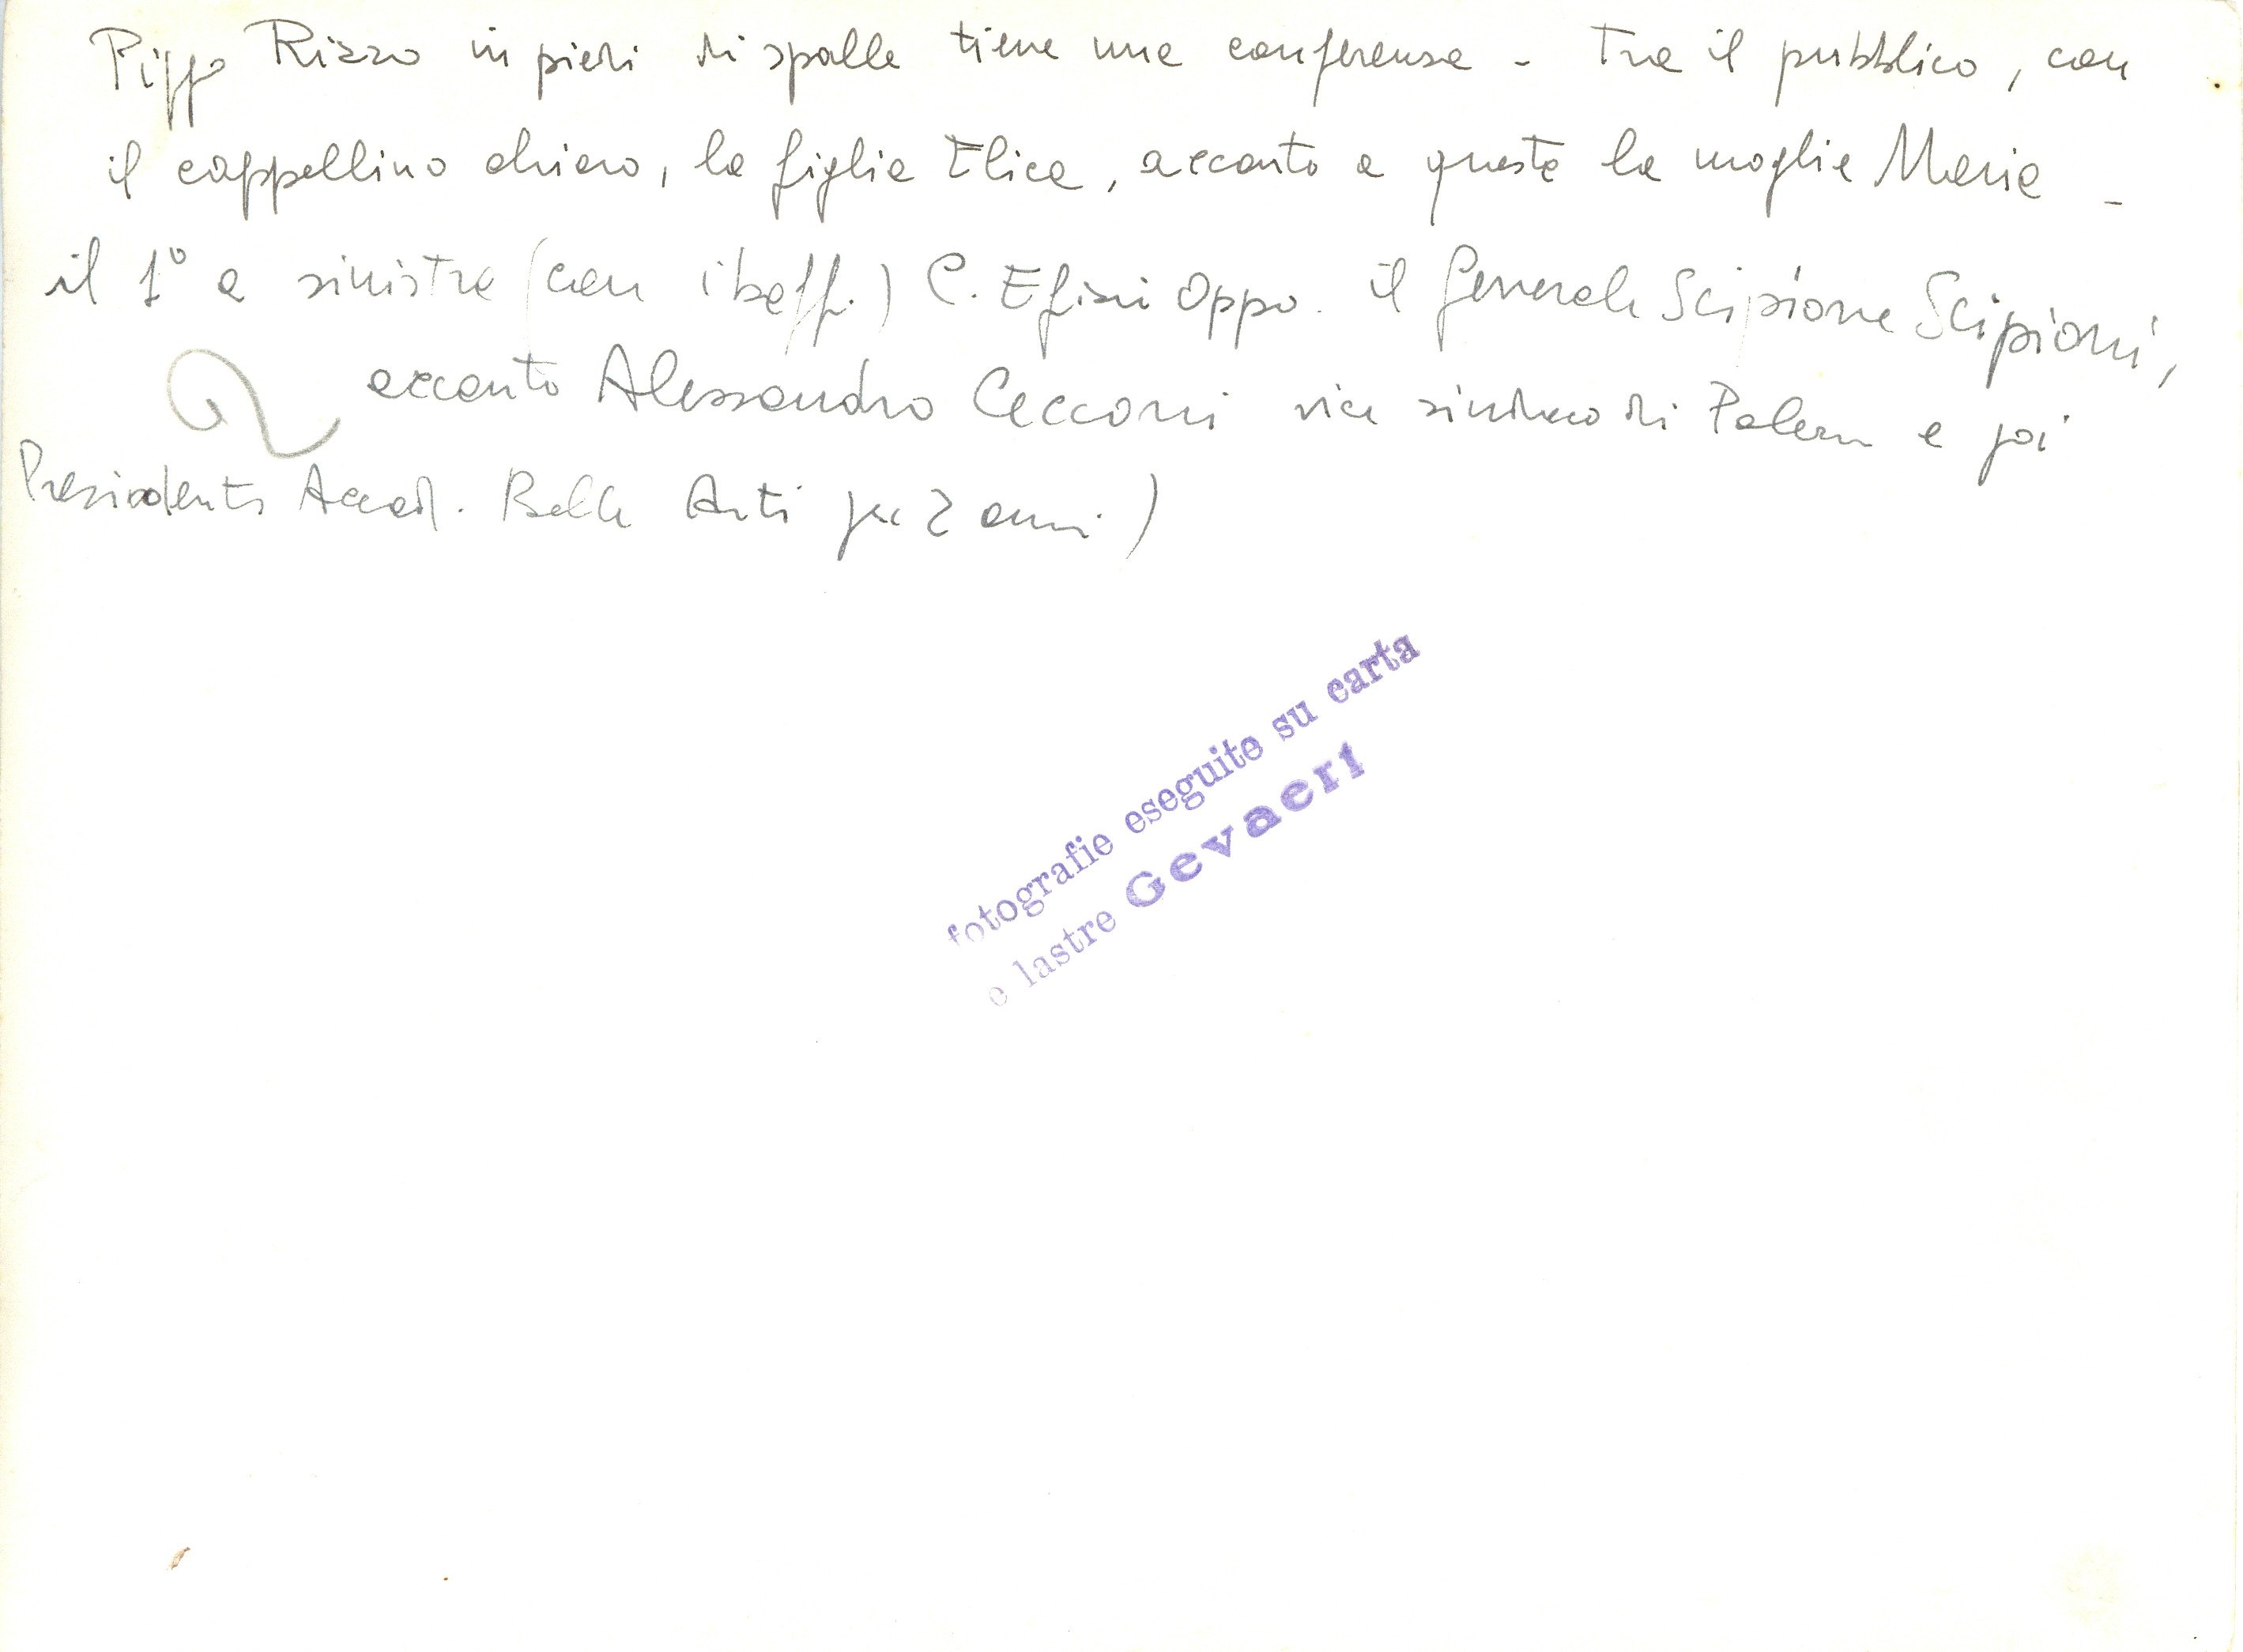 Pippo Rizzo in piedi di spalle tiene una conferenza - Tra il pubblico, con
il cappellino chiaro, la figlia Elica, accanto a questa la moglie Maria -
il 1° a sinistra (con i baffi.) C. Efisi Oppo. il Generale Scipione Scipioni,
accanto Alessandro Cecconi vice sindaco di Palerm e poi
Presidente Accad. Belle Arti per 2 anni.)
fotografie eseguite su carta
e lastre Gevaert